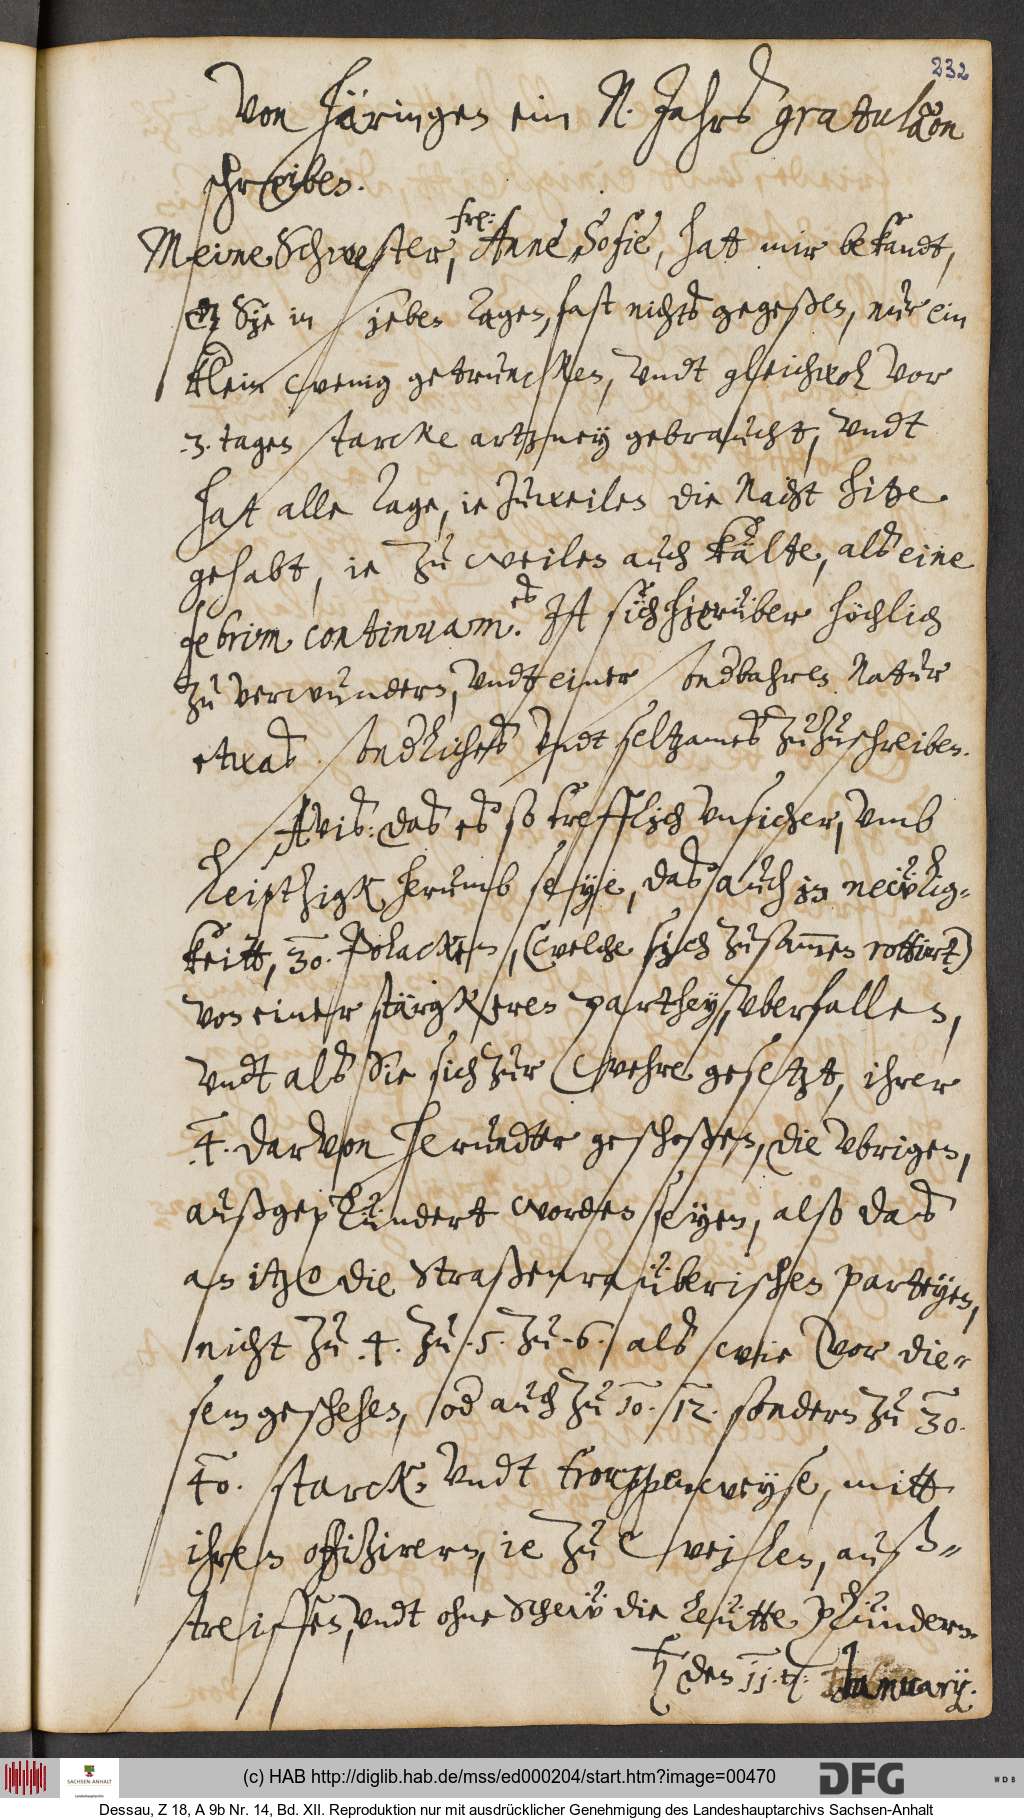 232
Von Häringen ein N. Jahrs gratulaõn
schreiben.
Meine Schwester, frl: Anne Sofie, hat mir bekandt,
dz Sie in sieben Tagen, fast nichts gegeßen, nur ein
klein wenig getruncken, undt gleichwol vor
.3. tagen starcke artzney gebraucht, undt
hat alle Tage, ie zuweilen die Nacht hitze
gehabt, ie zu weilen auch kälte, als eine
febrim continuam. Ist es sich hierüber höchlich
zu verwundern, undt einer sondbahren Natur
etwas sondliches undt seltzames zuzuschreiben.
Avis: das es so trefflich unsicher, umb
Leipthzigk herumb seye, das auch in newlig-
keitt, 30. Polacken, (welche sich zusammen rottirt)
von einer stärgkeren parthey, uberfallen,
undt als Sie sich zur wehre gesetzt, ihrer
.4. darvon herundter geschoßen, die ubrigen,
außgeplündert worden seyen, also das
an itzo die Straßenraüberischen parteyen,
nicht zu .4. zu .5. zu .6. als wie vor die-
sem geschehen, od auch zu 10. 12. sondern zu 30.
40. starck, undt trouppenweyse, mitt
ihren offizirern, ie zu weilen, auß-
streiffen, undt ohne Schew die Leütte plündern.
♄ den 11. t: January.
(c) HAB http://diglib.hab.de/mss/ed000204/start.htm?image=00470
SACHSEN-ANHALT
Landeshauptarchiv
DFG
WDB
Dessau, Z 18, A 9b Nr. 14, Bd. XII. Reproduktion nur mit ausdrücklicher Genehmigung des Landeshauptarchivs Sachsen-Anhalt